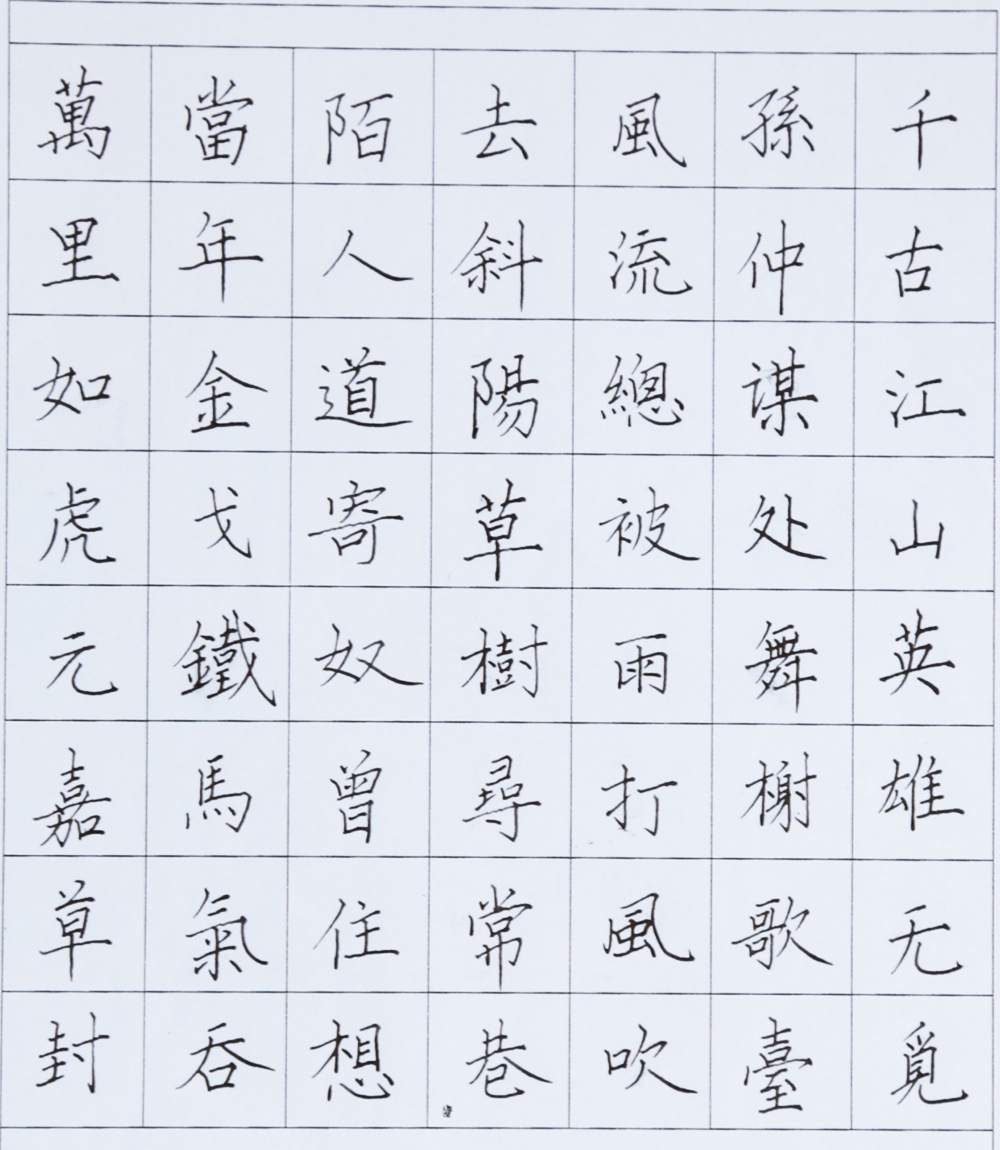 千古江山英雄无覓
孫仲謀处舞榭歌臺
風流總被雨打風吹
去斜陽草樹尋常巷
陌人道寄奴曾住想
當年金戈鐵馬氣吞
萬里如虎元嘉草封